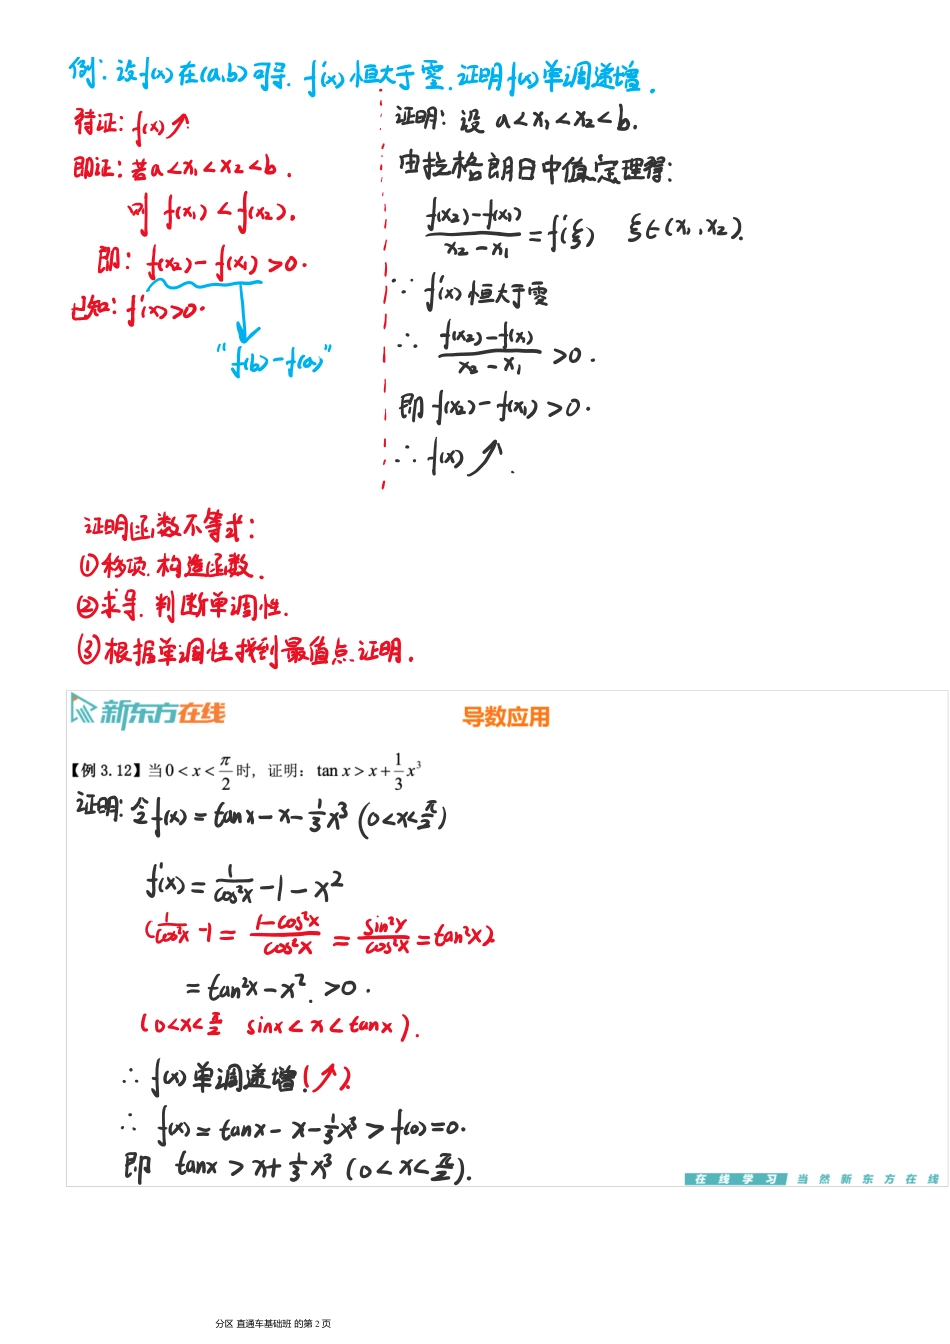 例: 设f(x)在(a,b)可导. f'(x)恒大于零. 证明f(x)单调递增.
待证: f(x)↗
即证: 若a<x₁<x₂<b.
则 f(x₁)<f(x₂).
即: f(x₂)-f(x₁)>0.
已知: f'(x)>0.
"f(b)-f(a)"
证明: 设 a<x₁<x₂<b.
由拉格朗日中值定理得:
(f(x₂)-f(x₁))/(x₂-x₁)=f'(ξ) ξ∈(x₁,x₂).
∵ f'(x)恒大于零
∴ (f(x₂)-f(x₁))/(x₂-x₁)>0.
即 f(x₂)-f(x₁)>0.
∴ f(x)↗.
证明函数不等式:
①移项. 构造函数.
②求导. 判断单调性.
③根据单调性找到最值点证明.
新东方在线 导数应用
【例 3.12】当0<x<π/2时,证明: tan x>x+1/3x³
证明: 令f(x)=tanx-x-1/3x³ (0<x<π/2)
f'(x)=1/cos²x-1-x²
(1/cos²x-1=(1-cos²x)/cos²x=sin²x/cos²x=tan²x)
=tan²x-x². >0.
(0<x<π/2 sinx<x<tanx).
∴ f(x)单调递增.(↗).
∴ f(x)=tanx-x-1/3x³>f(0)=0.
即 tanx>x+1/3x³ (0<x<π/2).
在线学习 当然新东方在线
分区 直通车基础班 的第 2 页